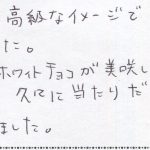 高級なイメージで
た。
ホワイトチョコが美味し
久々に当たりだ
ました。